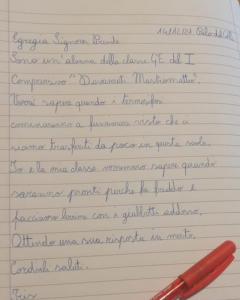 14/12/21
Egregia Signora
Sono un'alunna della classe 4E del I
Comprensivo "Davanzati Mastromatteo".
Vorrei sapere quando i termosifoni
cominceranno a funzionare visto che ci
siamo trasferiti da poco in questa scuola.
Io e la mia classe vorremmo sapere quando
saranno pronti perché fa freddo e
facciamo lezione con i giubbotti addosso.
Attendo una sua risposta in merito.
Cordiali saluti.